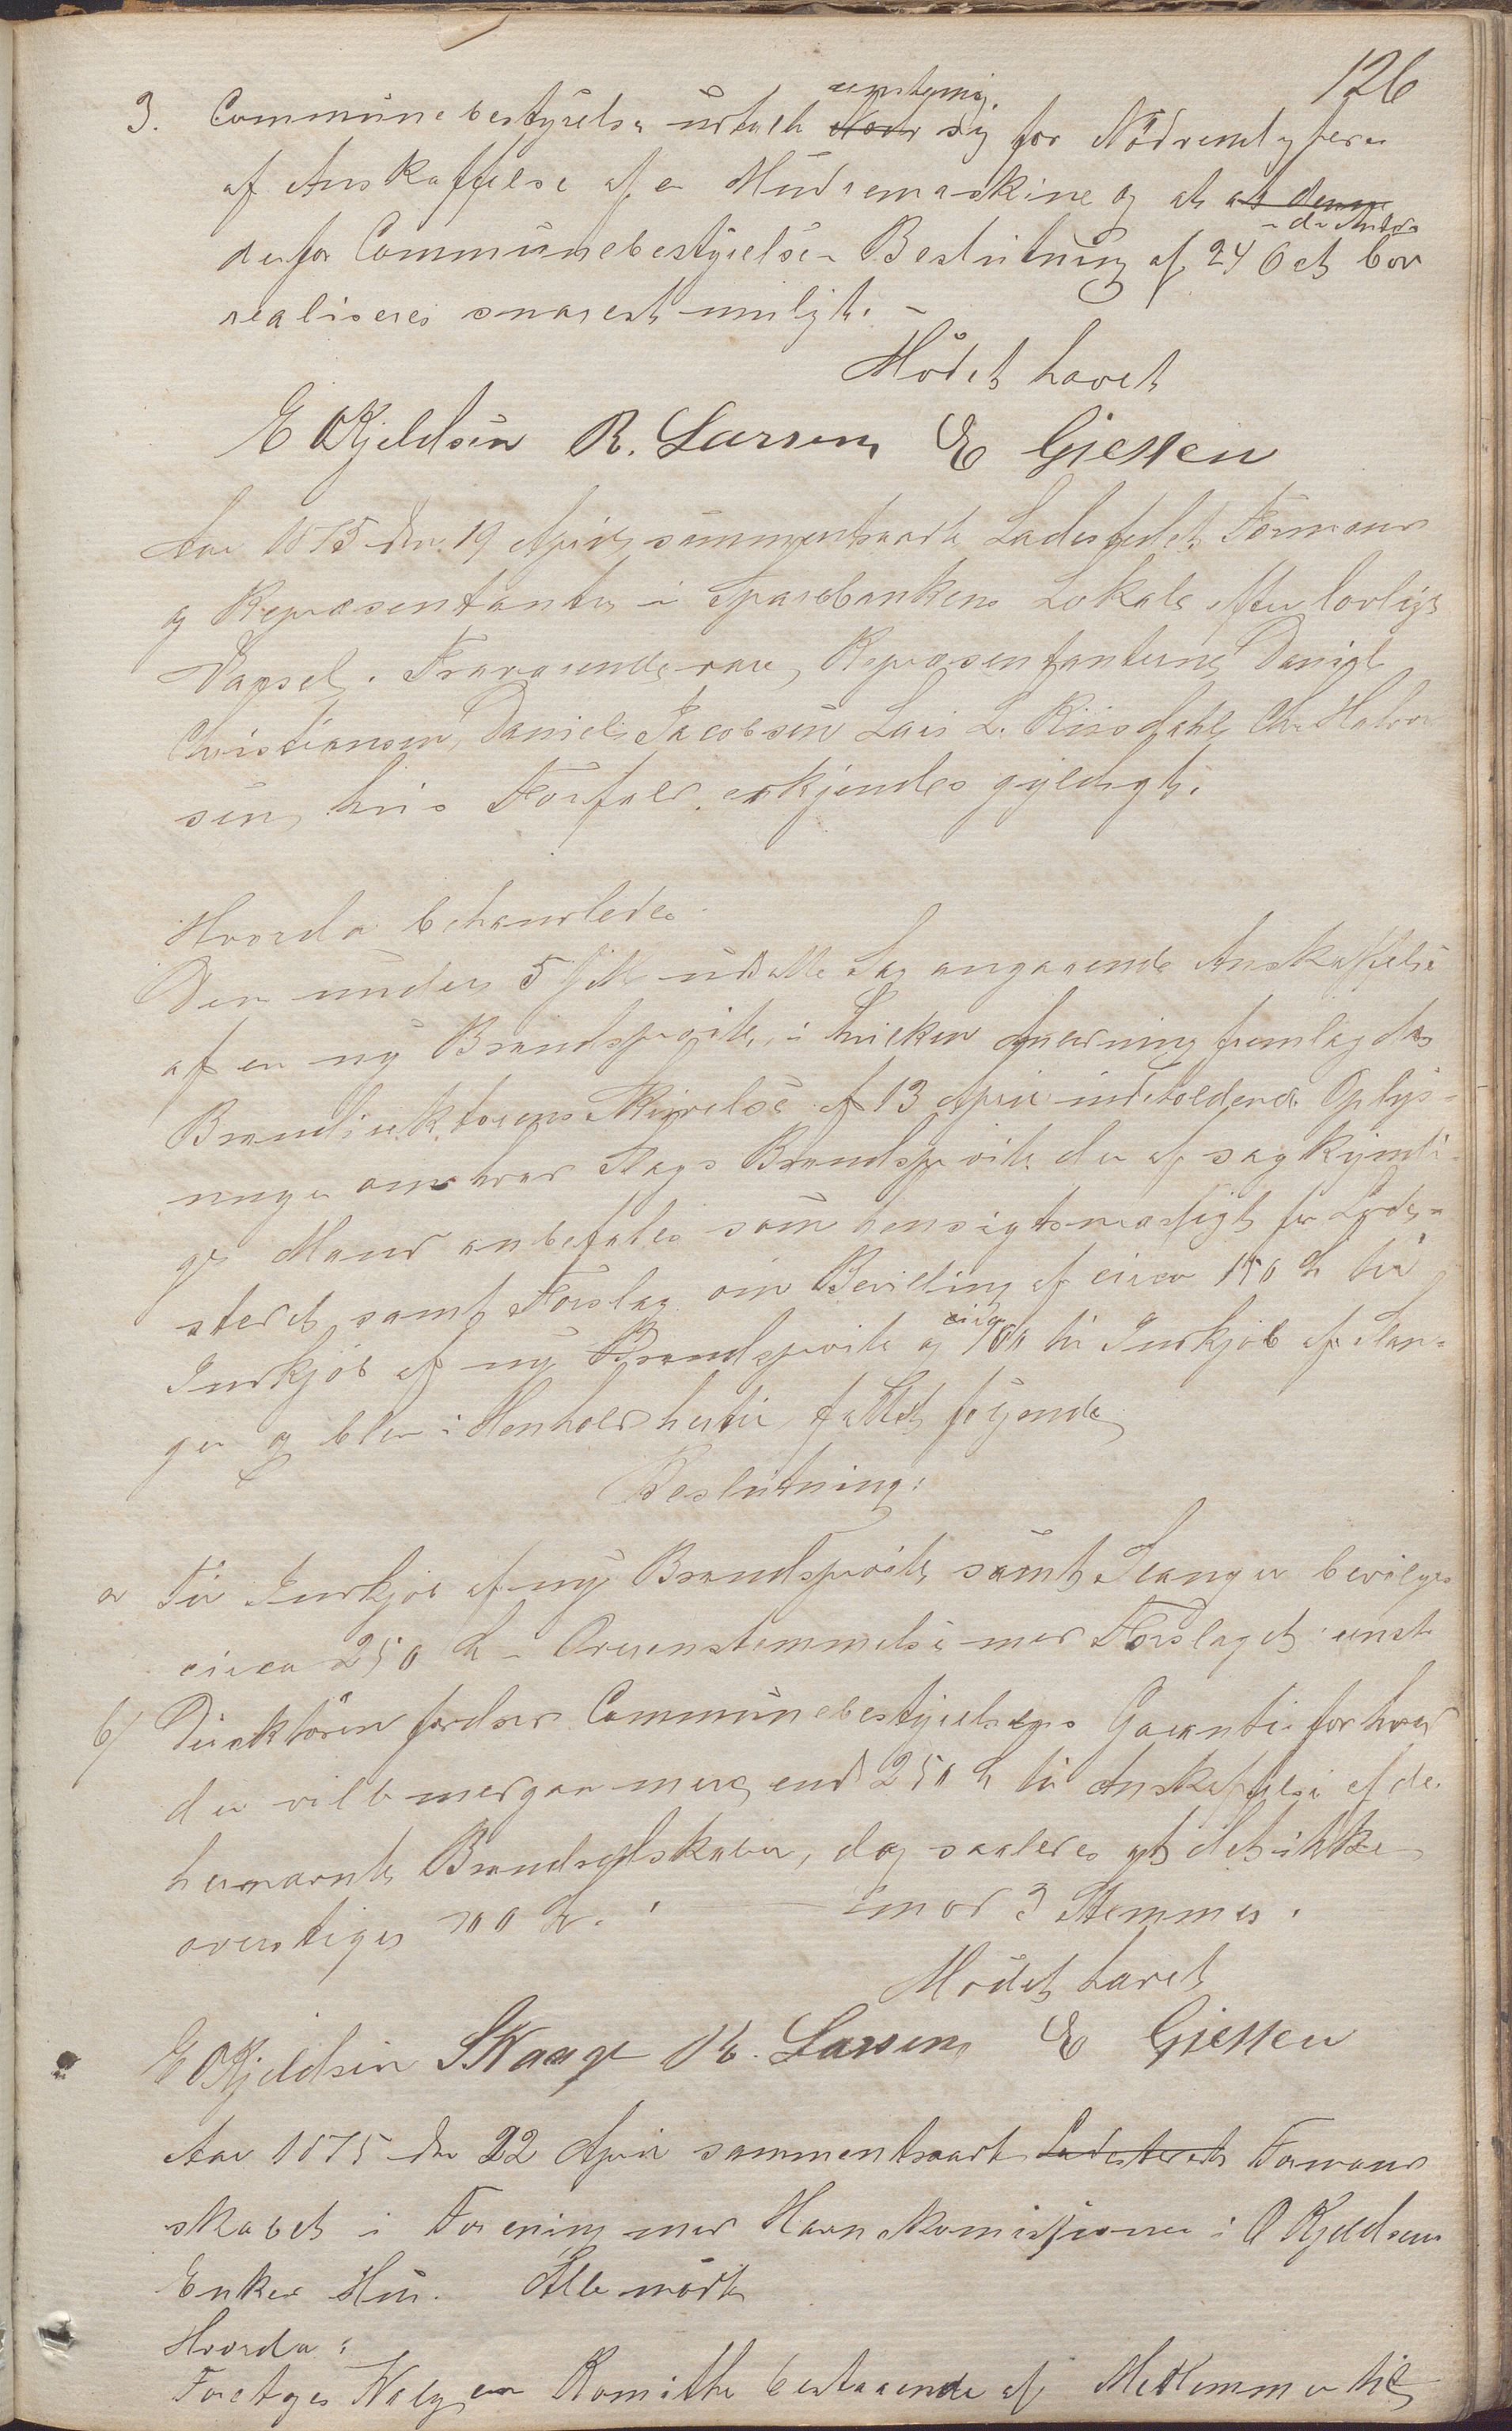 126
eenstemmig
3. Communebestyrelsen udtalte sig for Nødvendigheden
af Anskaffelse af en Muddermaskine og at at denne
derfor Communebestyrelsens Beslutning af 24 Oct bør
realiseres snarest muligt. -
Mødet hævet
E OKjeldsen R. Larsen E Gjessen
Aar 1875 den 19 April sammentraadte Ladestedets Formænd
og Repræsentanter i Sparebankens Lokale efter lovligt
Varsel. Fraværende vare Repræsentanterne Daniel
Christiansen, Daniel Jacobsen Lars L. Riisdahl Chr. Halvor
sen, hvis Forfald erkjendes gyldigt.
Hvorda behandledes
Den under 5 udsatte Sag angaaende Anskaffelse
af en ny Brandsprøite, i hvilken Anledning fremlagdes
Branddirektørens Skrivelse af 13 April indeholdende Oplys-
ninger om hvad Slags Brandsprøite der af sagkyndi-
ge Mænd anbefales som hensigtsmæssigt for Lade-
stedet samt Forslag om Bevilling af circa 150 til
circa
Indkjøb af ny Brandsprøite og 100 til Indkjøb af Slan-
ger og blev i Henhold hertil fattet følgende
Beslutning:
a Til Indkjøb af ny Brandsprøite samt Slanger bevilges
circa 250 i Overenstemmelse med Forslaget eenst
b/ Direktøren fordrer Communebestyrelsens Garanti for hvad
der vil medgaa mere end 250 til Anskaffelse af de
hernævnte Brandredskaber, dog saaledes at det ikke
overstiger 100 imod 3 Stemmer.
Mødet hævet
E OKjeldsen SWaage R. Larsen E Gjessen
Aar 1875 den 22 April sammentraadte Ladestedets Formand
skabet i Forening med Havnekomissionen i O Kjeldsens
Enkes Hus. Alle mødte
Hvorda:
Foretoges Valg en Komitte bestaaende af Medlemmer til